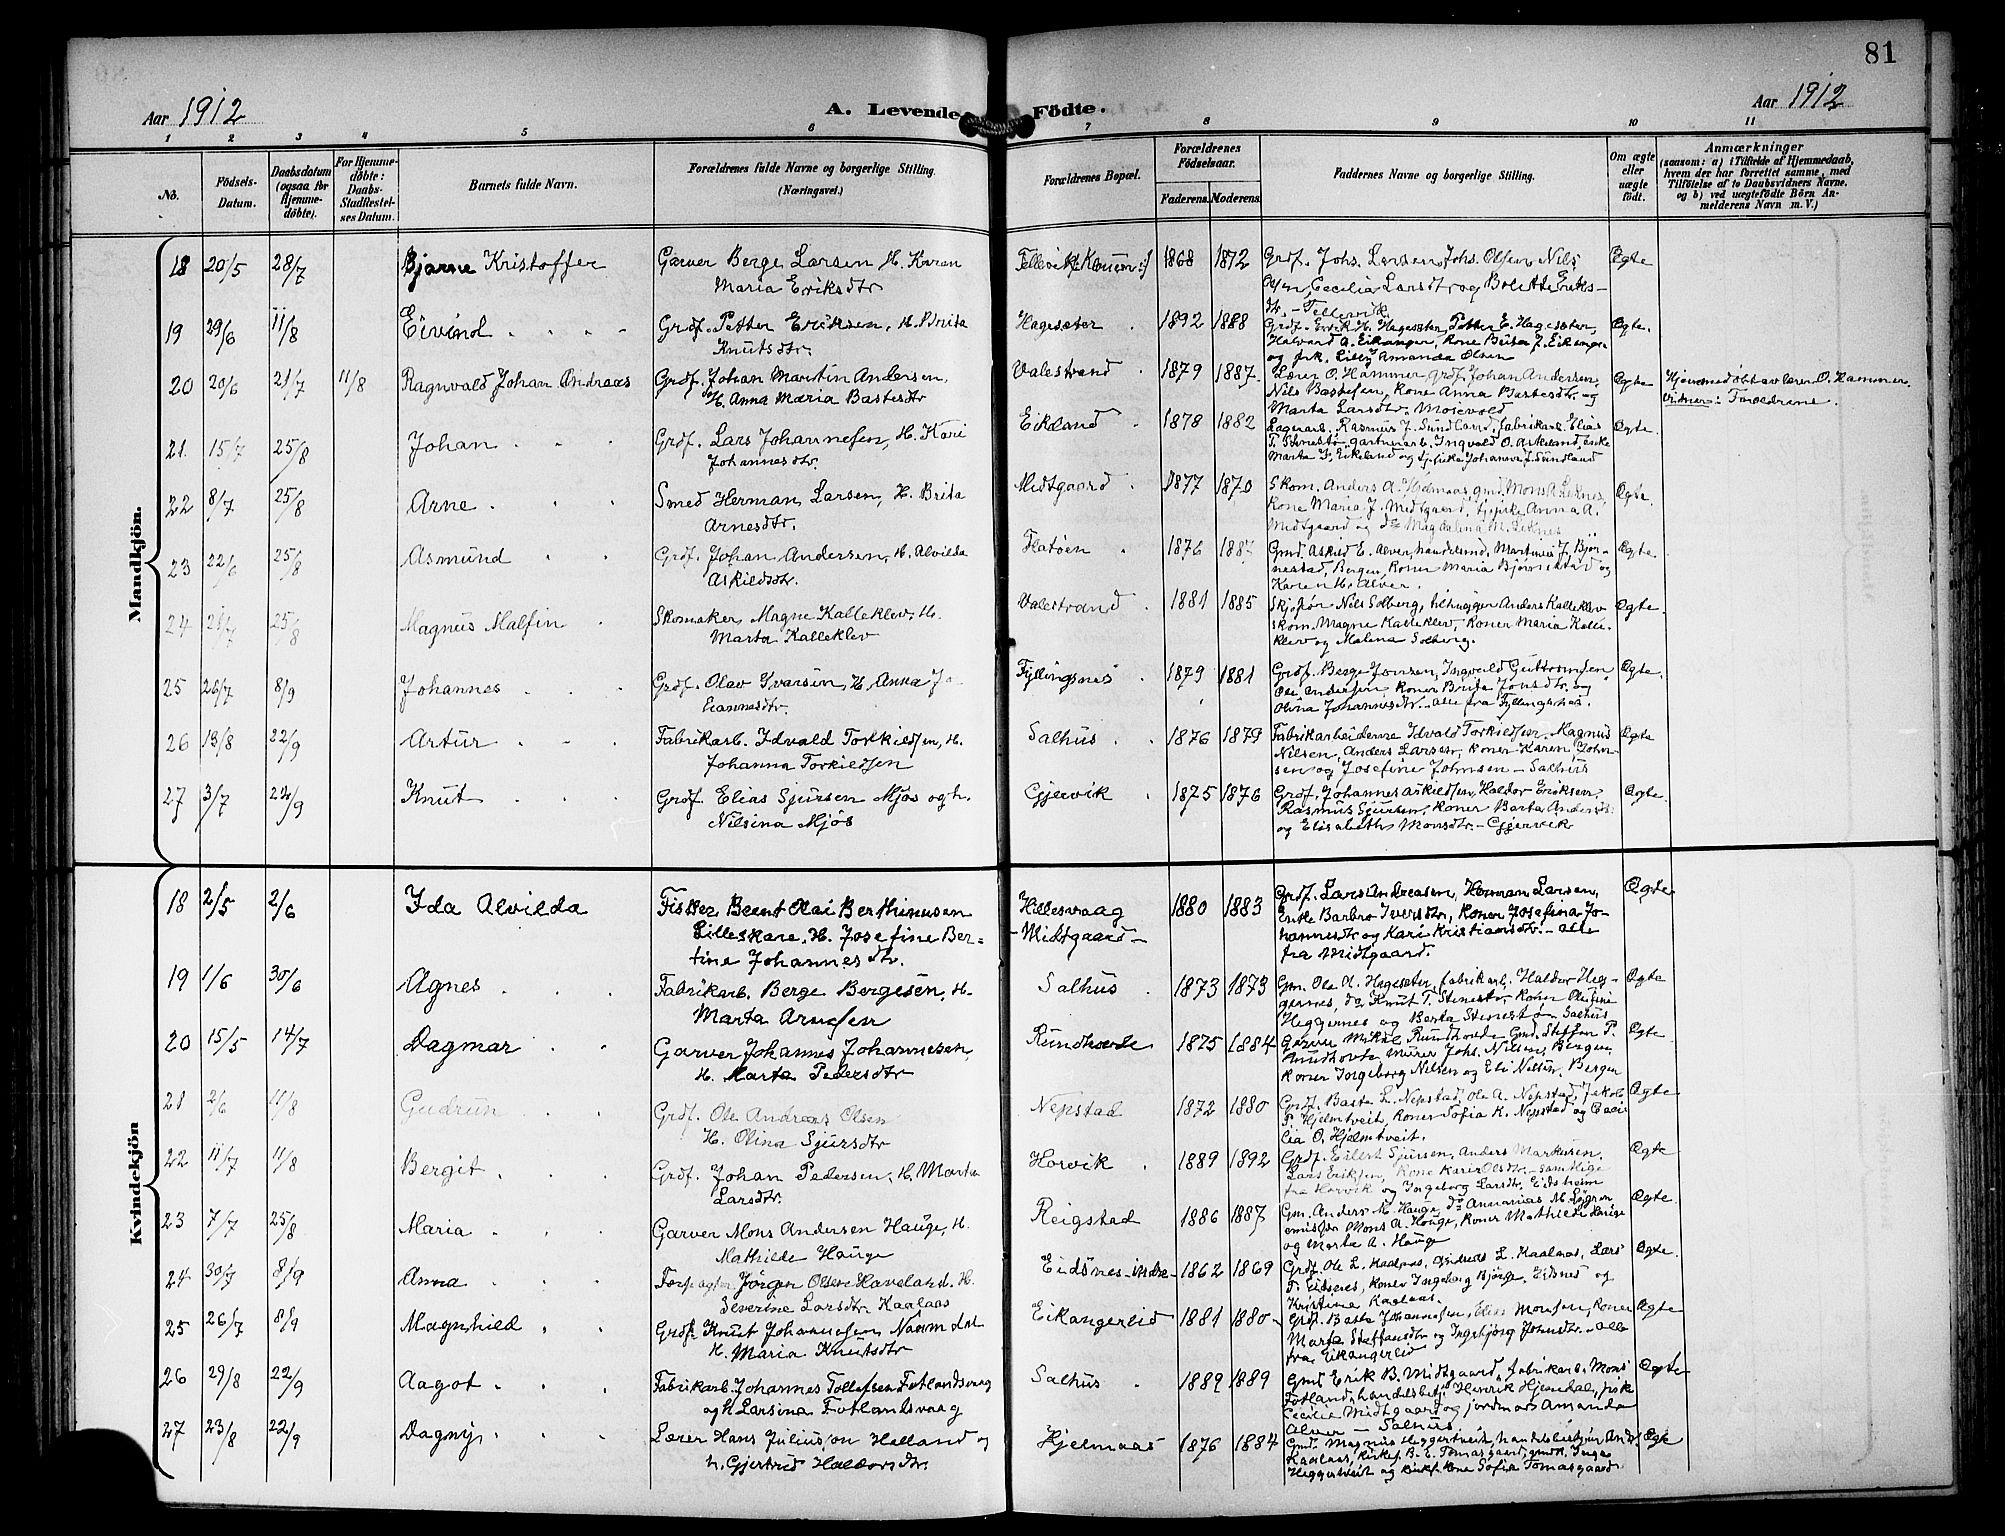 81
Aar 1912
A. Levende Födte.
Aar 1912
1 2 3 4 5 6 7 8 9 10 11
No.
Födsels-Datum.
Daabsdatum (ogsaa for Hjemmedöbte).
For Hjemmedöbte: Daabs-Stadfæstelses Datum.
Barnets fulde Navn.
Forældrenes fulde Navne og borgerlige Stilling.
(Næringsvei.)
Forældrenes Bopæl.
Forældrenes Födselsaar.
Faderens. Moderens.
Faddernes Navne og borgerlige Stilling.
Om ægte eller uægte födt.
Anmærkninger
(saasom: a) i Tilfælde af Hjemmedaab, hvem der har forrettet samme, med Tilföielse af to Daabsvidners Navne, og b) ved uægtefödte Börn Anmelderens Navn m. V.)
Mandkjön.
18 20/5 28/7 Bjarne Kristoffer Garver Berge Larsen, H. Karen 1868 1872 Grdf. Johs. Larsen, Johs. Olsen, Nils Ægte
Maria Eriksdtr Olsen, Cecilia Larsdtr og Bolette Eriks-
dtr. – Tellevik
19 29/6 11/8 Eivind Grdf. Petter Eriksen, H. Brita Hagesæter 1892 1888 Grdf. Erik H. Hagesæter, Petter E. Hagesæter, Ægte.
Knutsdtr. Halvard A. Eikanger, Kone Brita J. Eikanger
og frk. Lilly Amanda Olsen
20 20/6 21/7 11/8 Ragnvald Johan Andreas Grdf. Johan Martin Andersen, Valestrand 1879 1887 Lærer O. Hammer, grdf. Johan Andersen, Ægte Hjemmedöbt av lærer O. Hammer.
H. Anna Maria Bastesdtr Nils Bastesen, Kone Anna Bastesdtr. og Vidner: Forældrene.
Marta Larsdtr. Mosevold
21. 15/7 25/8 Johan Grdf. Lars Johannesen, H. Kari Eikland 1878 1882 Rasmus J. Sundland, fabrikarb. Elias Ægte.
Johannesdtr. T. Stenestö, gartnerarb. Ingvald O. Askeland, enke
Marta I. Eikeland og Johanna J. Sundland
22 8/7 25/8 Arne Smed Herman Larsen, H. Brita Midtgaard 1877 1870 Skom. Anders A. Hjelmaas, gmd. Mons A. Leknes, Ægte
Arnesdtr. Kone Maria J. Midtgaard, tj.pike Anna A.
Midtgaard og do Magdalena M. Leknes
23 22/6 25/8 Asmund Grdf. Johan Andersen, H. Alvilda Flatöen 1876 1887 Gmd. Askild E. Alver, handelsmd. Martinus J. Bjør- Ægte
Askildsdtr. nestad, Bergen, Koner Maria Bjørnestad og
Karen H. Alver.
24 25/8 Magnus Malfin Skomaker Magne Kalleklev, H. Valestrand 1881 1885 Nils Solberg, Anders Kalleklev Ægte
Marta Kalleklev Skom. Magne Kalleklev, Koner Maria Kalle-
klev og Malena Solberg.
25 26/7 8/9 Johannes Grdf. Olav Ivarsen, H. Anna Jo- Fyllingsnes 1879 1881 Grdf. Berge Jonsen, Ingvald Guttormsen, Ægte.
hannesdtr. Ole Andersen, Koner Brita Jonsdtr. og
Olina Johannesdtr. – alle fra Fyllingsnes.
26 13/8 22/9 Artur Fabrikarb. Idvald Torkildsen, H. Salhus 1876 1879 Fabrikarbeiderne Idvald Torkildsen, Magnus Ægte
Johanna Torkildsen Nilsen, Anders Larsen, Koner Karen John-
sen og Josefine Johnsen – Salhus
27 3/7 22/9 Knut Grdf. Elias Sjursen Mjøs og h. Gjervik 1875 1876 Grdf. Johannes Askildsen, Haldor Eriksen, Ægte.
Nilsina Mjøs Rasmus Sjursen, Koner Berta Andersdtr.
og Elisabeth Monsdtr. – Gjervik
Kvindekjön
18 2/5 2/6 Ida Alvilda Fisker Beent Olai Berthinusen Hillesvaag 1880 1883 Grdf. Lars Andreasen, Herman Larsen, Ægte
Lilleskare, H. Josefine Ber- – Midtgaard – Enke Barbro Iversdtr, Koner Josefina Jo-
tine Johannesdtr. hannesdtr og Kari Kristiansdtr. – alle
fra Midtgaard.
19 1/6 30/6 Agnes Fabrikarb. Berge Bergesen, H. Salhus 1873 1873 Gm. Ole A. Hagesæter, fabrikarb. Haldor Heg- Ægte
Marta Arnesen gernes, do Knut T. Stenestø, Koner Olefine
Heggernes og Berta Stenestø – Salhus
20 15/5 14/7 Dagmar Garver Johannes Johannesen, Rundhovde 1875 1884 Garver Mikal Rundhovde, Gmd. Steffen P. Ægte
H. Marta Pedersdtr Rundhovde, Murer Johs. Nilsen, Bergen
Koner Ingeborg Nilsen og Eli Nilsen, Bergen
21 2/6 11/8 Gudrun Grdf. Ole Andreas Olsen Nepstad 1872 1880 Grdf. Baste L. Nepstad, Ole A. Nepstad, Jakob Ægte
H. Olina Sjursdtr P. Hjelmtveit, Koner Sofia K. Nepstad og Caci-
lia O. Hjelmtveit.
22 11/7 11/8 Bergit Grdf. Johan Pedersen, H. Marta Horvik 1889 1892 Grdf. Eilert Sjursen, Anders Markusen, Ægte
Larsdtr. Lars Eriksen, Kone Kari Olsdtr. – samtlige
fra Horvik og Ingeborg Larsdtr. Eidsheim
23 7/7 25/8 Maria Garver Mons Andersen Hauge, H. Reigstad 1886 1887 Gm. Anders M. Hauge, do Annanias M. Ægte
Mathilde Hauge Mons A. Hauge, Koner Mathilde Hauge
og Marta A. Hauge
24 30/7 8/9 Anna Forpagter Jørgen Olsen Haveland, H. Eidsnes – indre – 1862 1869 Grdf. Ole L. Kaalaas, Andreas L. Kaalaas, Lars Ægte.
Severine Larsdtr Kaalaas T. Eidsnes, Koner Ingeborg Bjørge, Eidsnes og
Kristine Kaalaas.
25 26/7 8/9 Magnhild Grdf. Knut Johannesen Naamdal Eikangerlid 1881 1880 Grdf. Baste Johannesen, Elias Monsen, Koner Ægte
H. Maria Knutsdtr Marta Steffensdtr og Ingebjørg Johnsdtr. – alle
fra Eikangerlid
26 29/8 22/9 Aagot Fabrikarb. Johannes Tollefsen Fotlandsvaag Salhus 1889 1889 Gmd. Erik B. Midtgaard, fabrikarb. Mons Ægte
og h. Larsina Fotlandsvaag Fotland, handelsbetj. Henrik Hjemdal, frk
Cecilie Midtgaard og jordmor Amanda
Alver – Salhus
27 23/8 22/9 Dagny Lærer Hans Juliusson Helland og Hjelmaas 1876 1884 Gmd. Magnus Heggertveit, handelsbestyrer Andr. Ægte
h. Gjertrud Haldorsdtr. Kaalaas, kirkes. B. E. Tomasgaard,
Heggertveit og Kone Sofia Tomasgaard